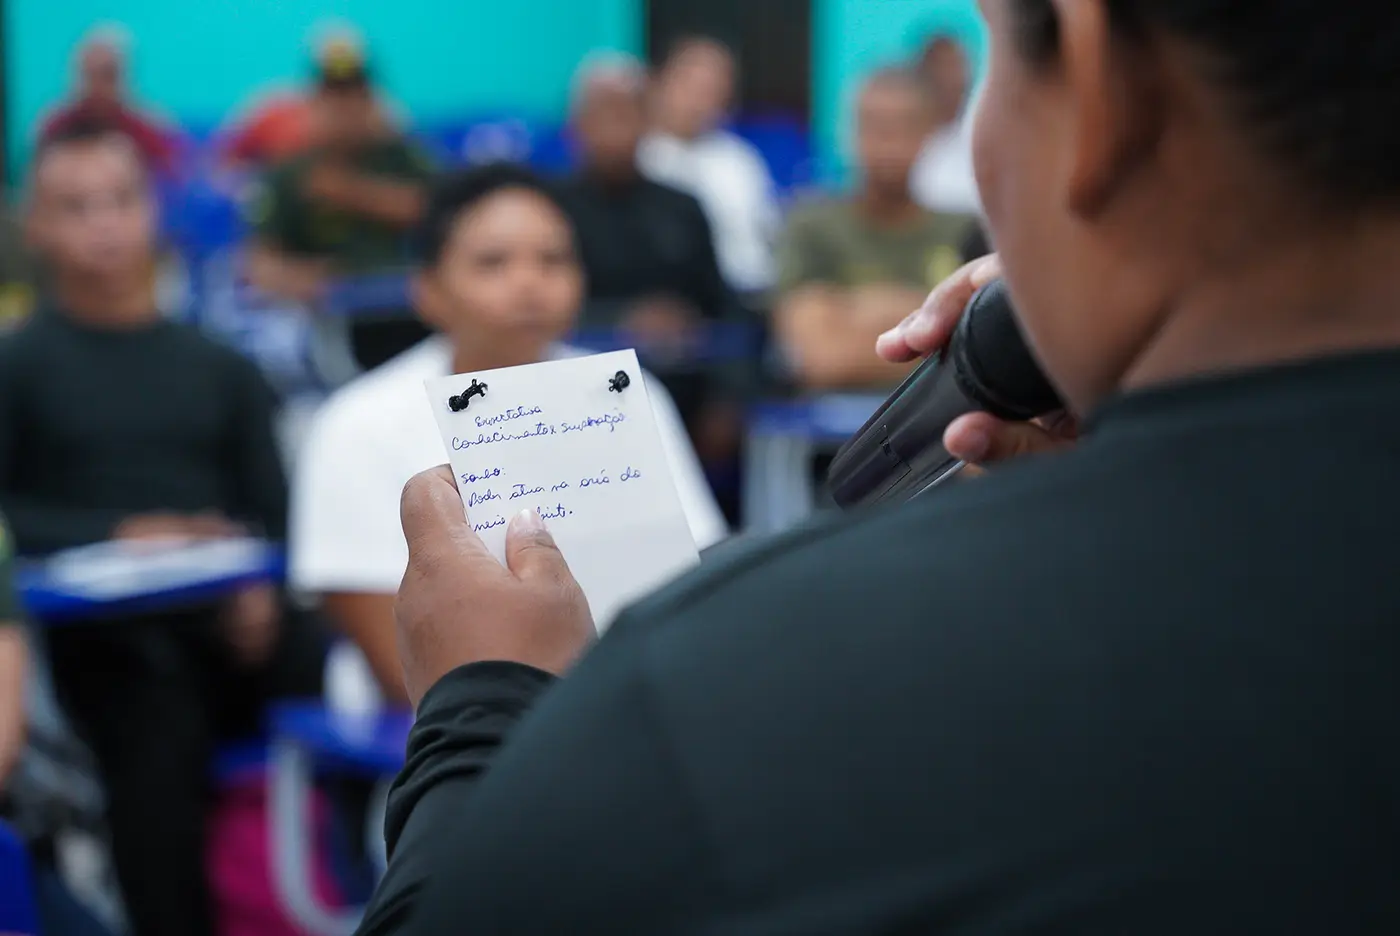 Expectativa
Conhecimento e superação
Sonho:
Poder atuar na área do
meio